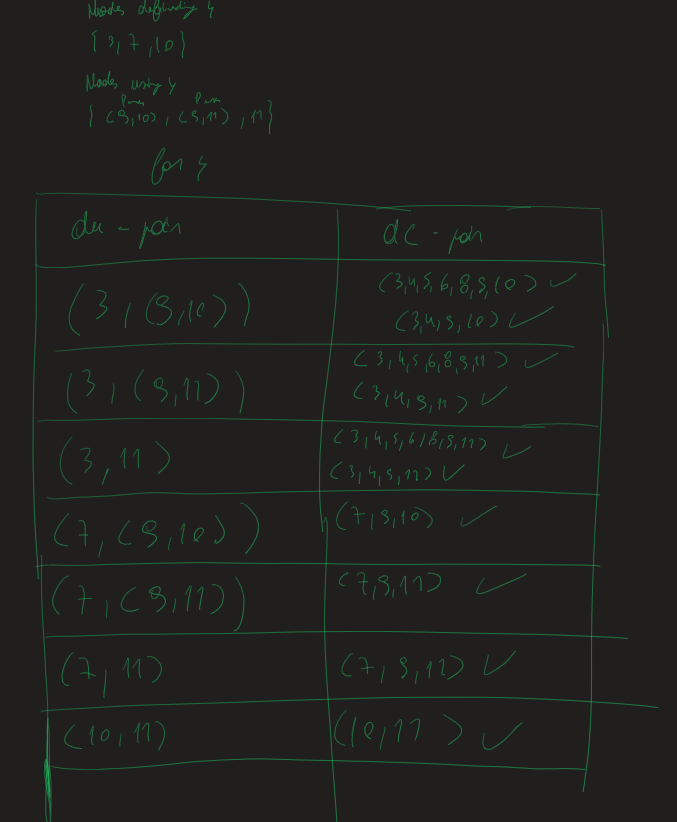 Nodes defining y
{3,7,10}
Nodes using y
{(9,10), (9,11), 11}
for y
du - pair
dc - pair
(3,(9,10))
(3,4,5,6,8,9,10) ✓
(3,4,9,10) ✓
(3,(9,11))
(3,4,5,6,8,9,11) ✓
(3,4,9,11) ✓
(3,11)
(3,4,5,6,8,9,11) ✓
(3,4,9,11) ✓
(7,(9,10))
(7,9,10) ✓
(7,(9,11))
(7,9,11) ✓
(7,11)
(7,9,11) ✓
(10,11)
(10,11) ✓